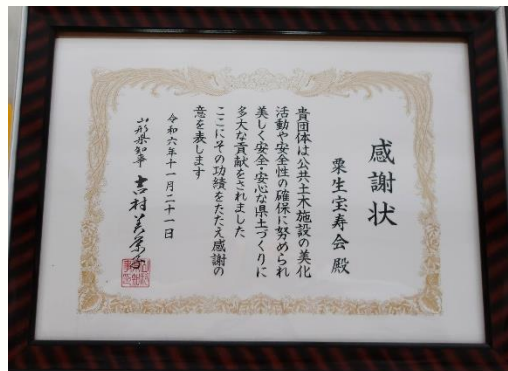 感謝状
粟生宝寿会殿
貴団体は公共土木施設の美化
活動や安全性の確保に努められ
美しく安全・安心な県土づくりに
多大な貢献をされました
ここにその功績をたたえ感謝の
意を表します
令和六年十一月二十一日
山形県知事 吉村美栄子